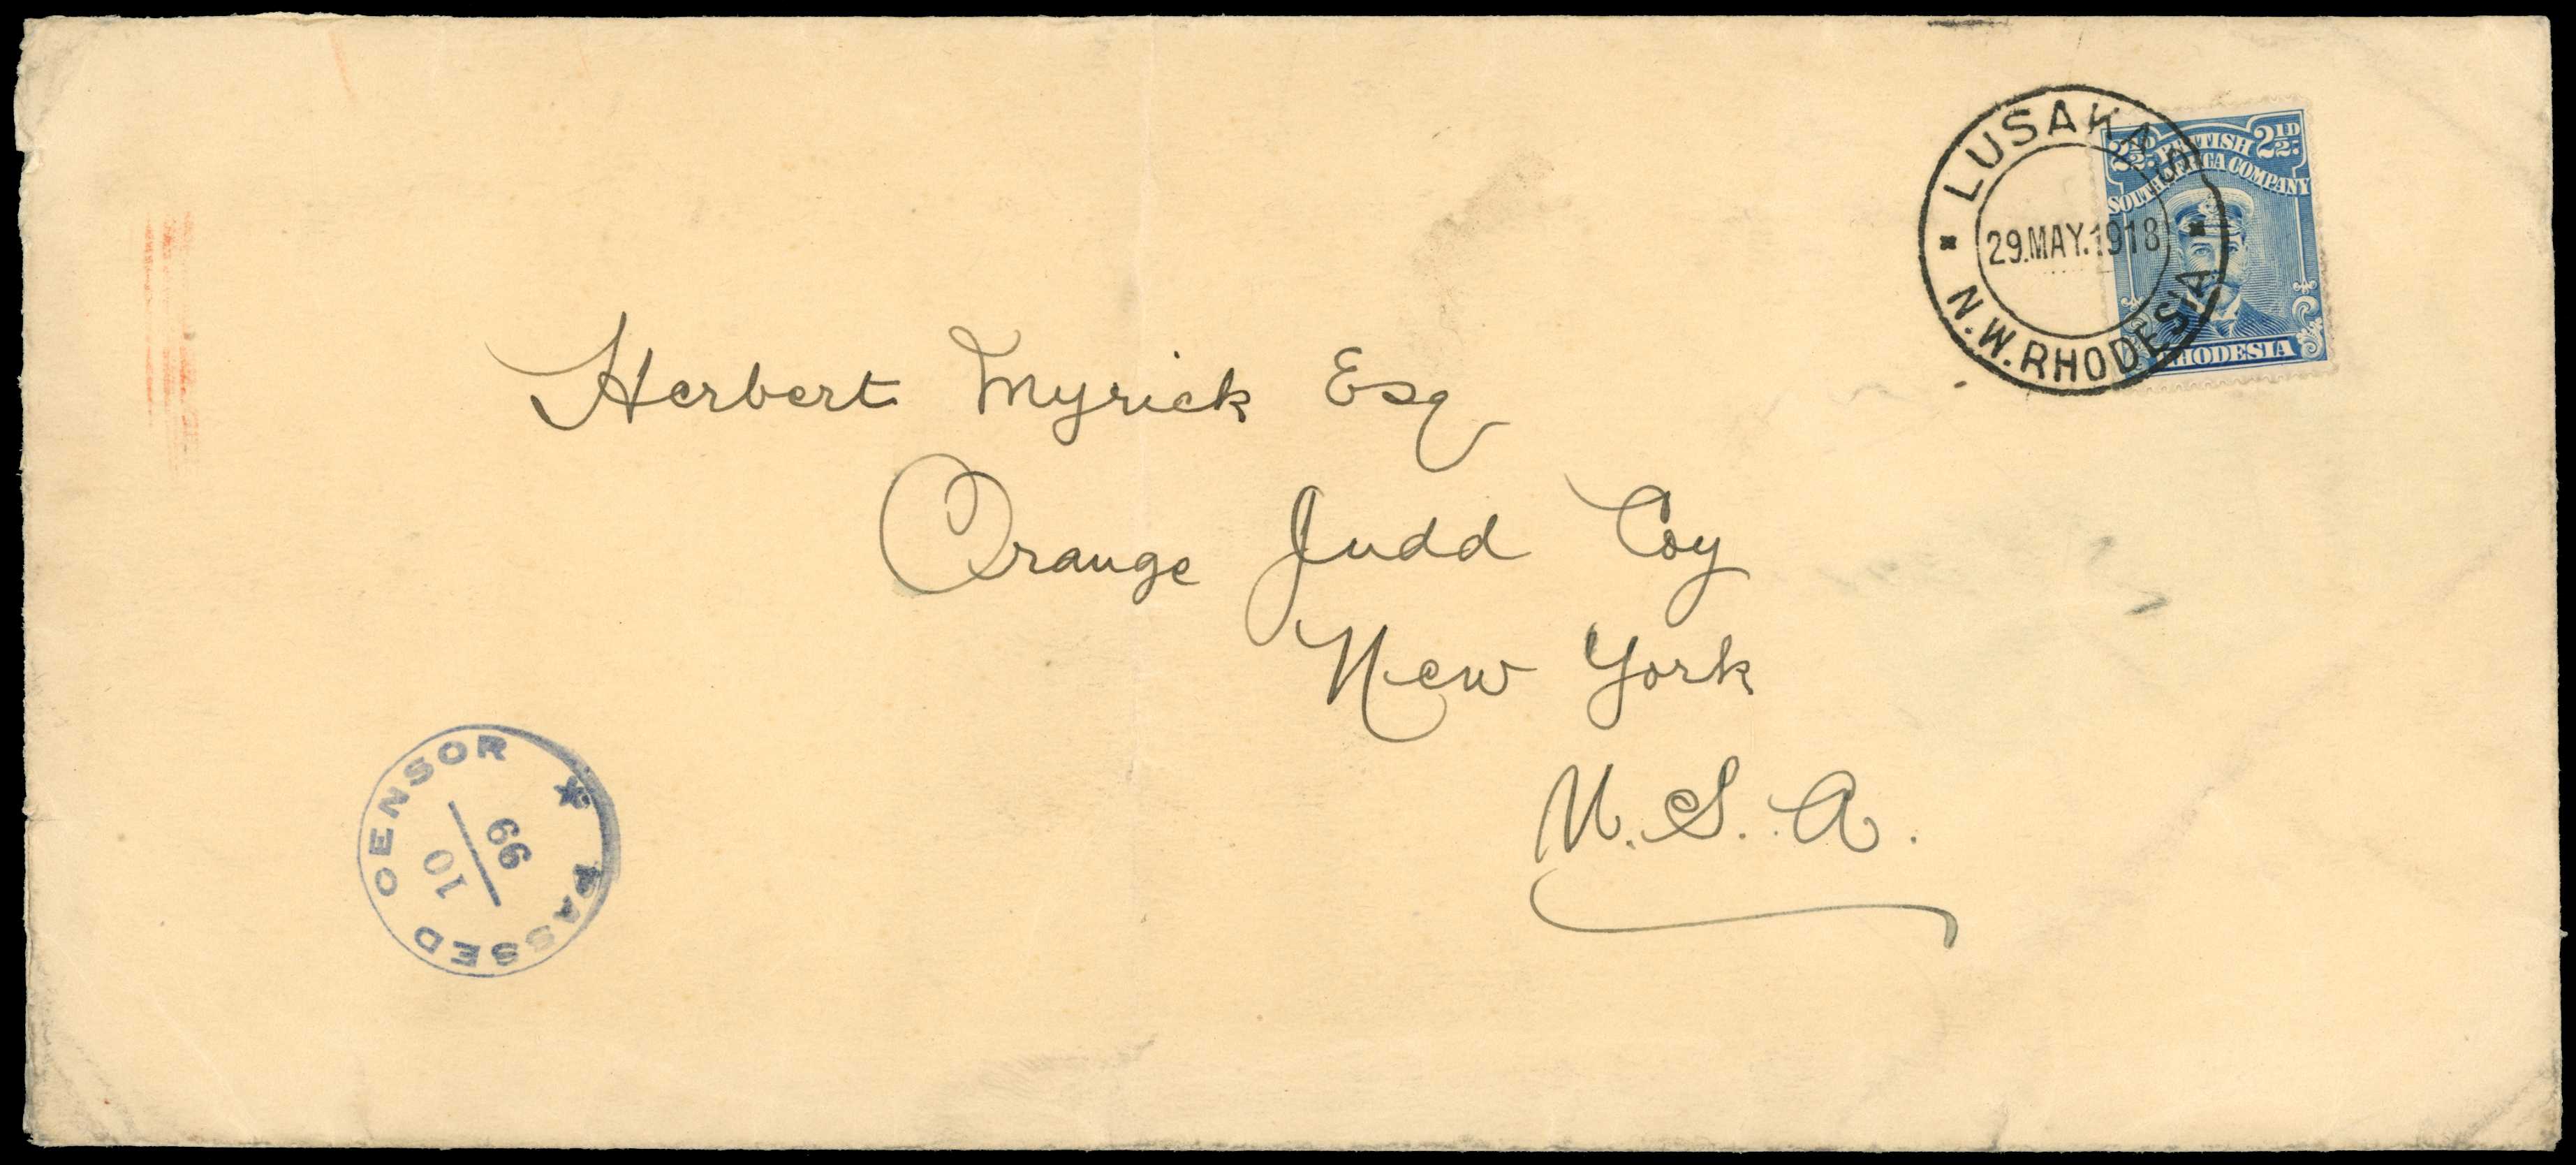 LUSAKAS
29.MAY.1918
N.W.RHODESIA
2½D. 2½D.
BRITISH
SOUTH AFRICA COMPANY
RHODESIA
Herbert Myrick Esq
Orange Judd Coy
New York
U.S.A.
PASSED CENSOR
99
10